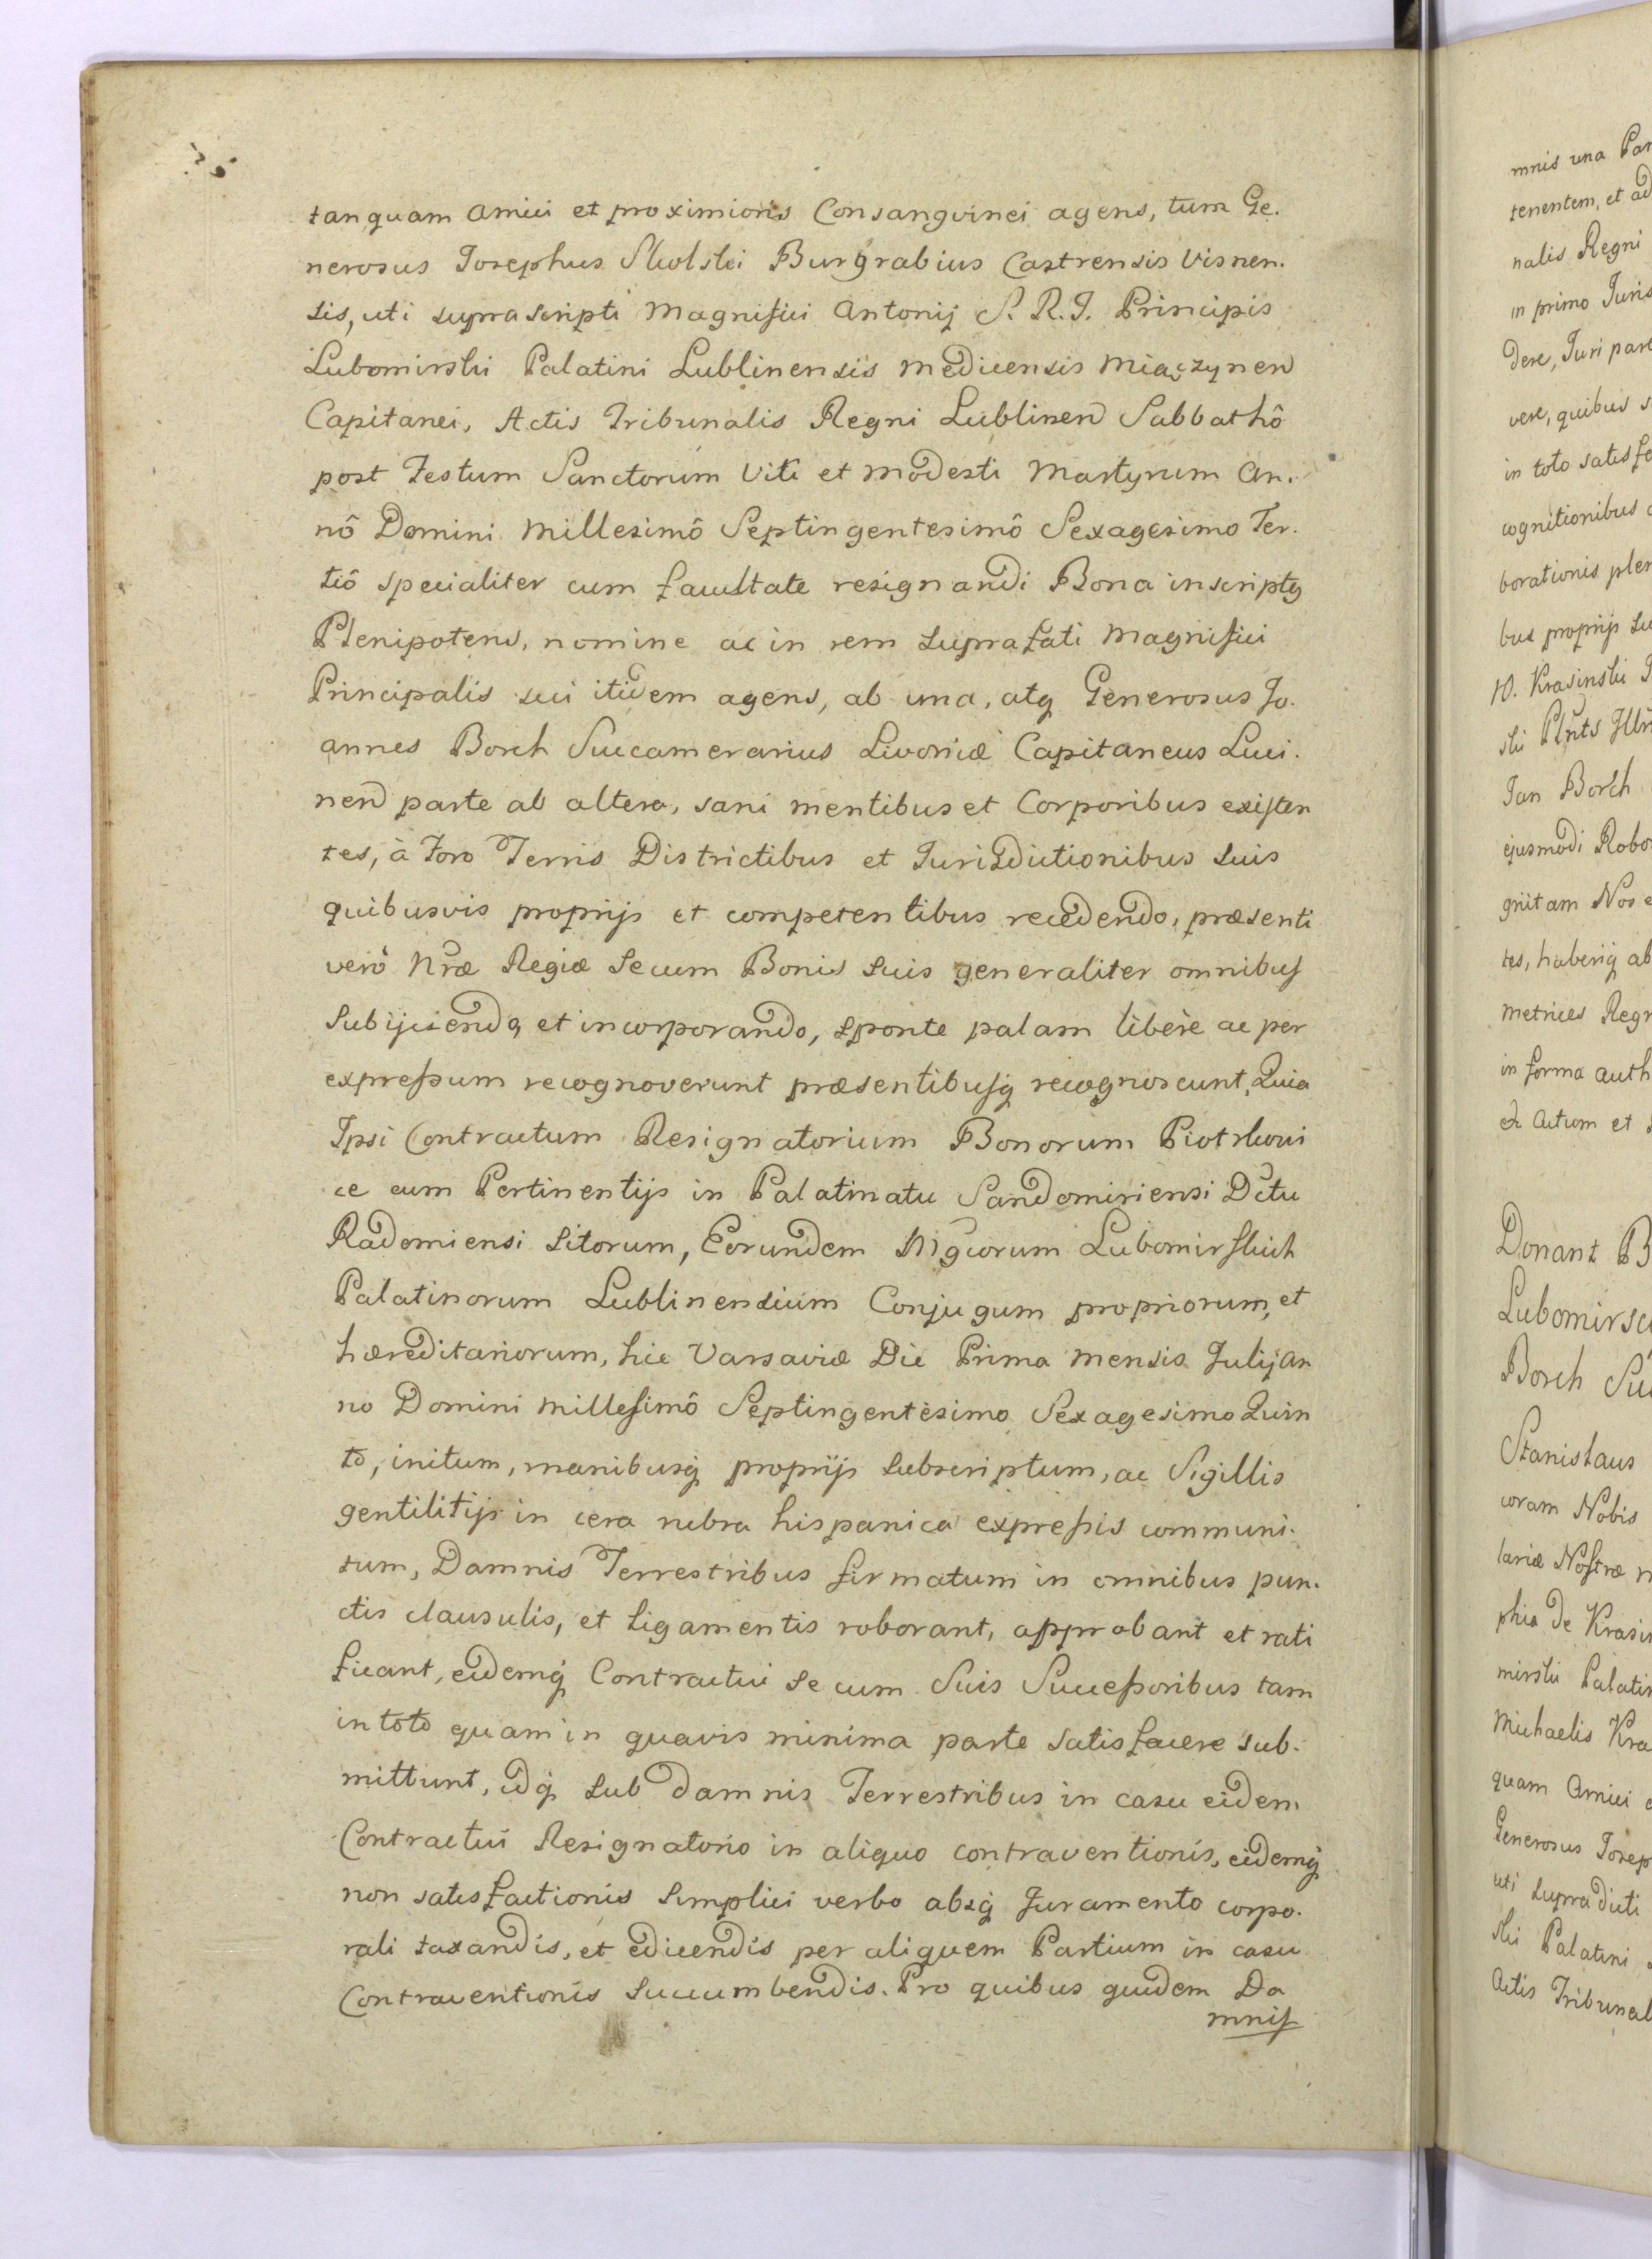 tanquam Amici et proximioris Consangvinei agens, tum Ge.
nerosus Josephus Skolski Burgrabius Castrensis Visnen.
sis, uti suprascripti Magnifici Antonij S. R. J. Principis
Lubomirski Palatini Lublinensis Medicensis Miączynen
Capitanei, Actis Tribunalis Regni Lublinen Sabbathô
post Festum Sanctorum Viti et Modesti Martyrum An.
nô Domini Millesimô Septingentesimô Sexagesimo Ter.
tiô specialiter cum facultate resignandi Bona inscriptq
Plenipotens, nomine ac in rem suprafati Magnifici
Principalis sui itidem agens, ab una, atq Generosus Jo.
annes Borch Succamerarius Livoniæ Capitaneus Luci.
nen parte ab altera, sani mentibus et Corporibus existen
tes, à Foro Terris Districtibus et Jurisdictionibus suis
quibusvis proprijs et competentibus recedendo, præsenti
verò Nræ Regiæ se cum Bonis suis generaliter omnibus
subijciendo, et incorporando, sponte palam libère ac per
expressum recognoverunt præsentibusq recognoscunt, Quia
Ipsi Contractum Resignatorium Bonorum Piotrkowi
ce cum Pertinentijs in Palatinatu Sandomiriensi Dctu
Radomiensi sitorum, Eorundem Mgcorum Lubomirskich
Palatinorum Lublinensium Conjugum propriorum, et
hæreditariorum, hic Varsaviæ Die Prima Mensis Julij An
no Domini Millesimô Septingentèsimo Sexagesimo Quin
to, initum, manibusq proprijs subscriptum, ac Sigillis
gentilitijs in cera rubra hispanica expressis communi.
tum, Damnis Terrestribus firmatum in omnibus pun.
ctis clausulis, et ligamentis roborant, approbant et rati
ficant, eidemq Contractui se cum Suis Successoribus tam
in toto quam in quavis minima parte satisfacere sub.
mittunt, idq sub damnis Terrestribus in casu eidem
Contractui Resignatorio in aliquo contraventionis, eidemq
non satisfactionis simplici verbo absq Juramento corpo.
rali taxandis, et edicendis per aliquem Partium in casu
Contraventionis succumbendis. Pro quibus quidem Da
mnis
mnis una Par
tenentem, et ad
nalis Regni
in primo Juris
dere, Juri pare
vere, quibus s
in toto satisfa
cognitionibus
borationis plen
bus proprijs su
H. Krasinski
ski Plnts
Jan Borch
ejusmodi Robo
gnitam Nos e
tes, haberiq ab
metrices Regn
in forma auth
Actum et
Donant B
Lubomirsc
Borch Su
Stanislaus
coram Nobis
lariæ Nostræ n
phia de Krasin
mirski Palatin
Michaelis Kra
quam Amici e
Generosus Josep
uti supra dicti
ski Palatini
Actis Tribunal